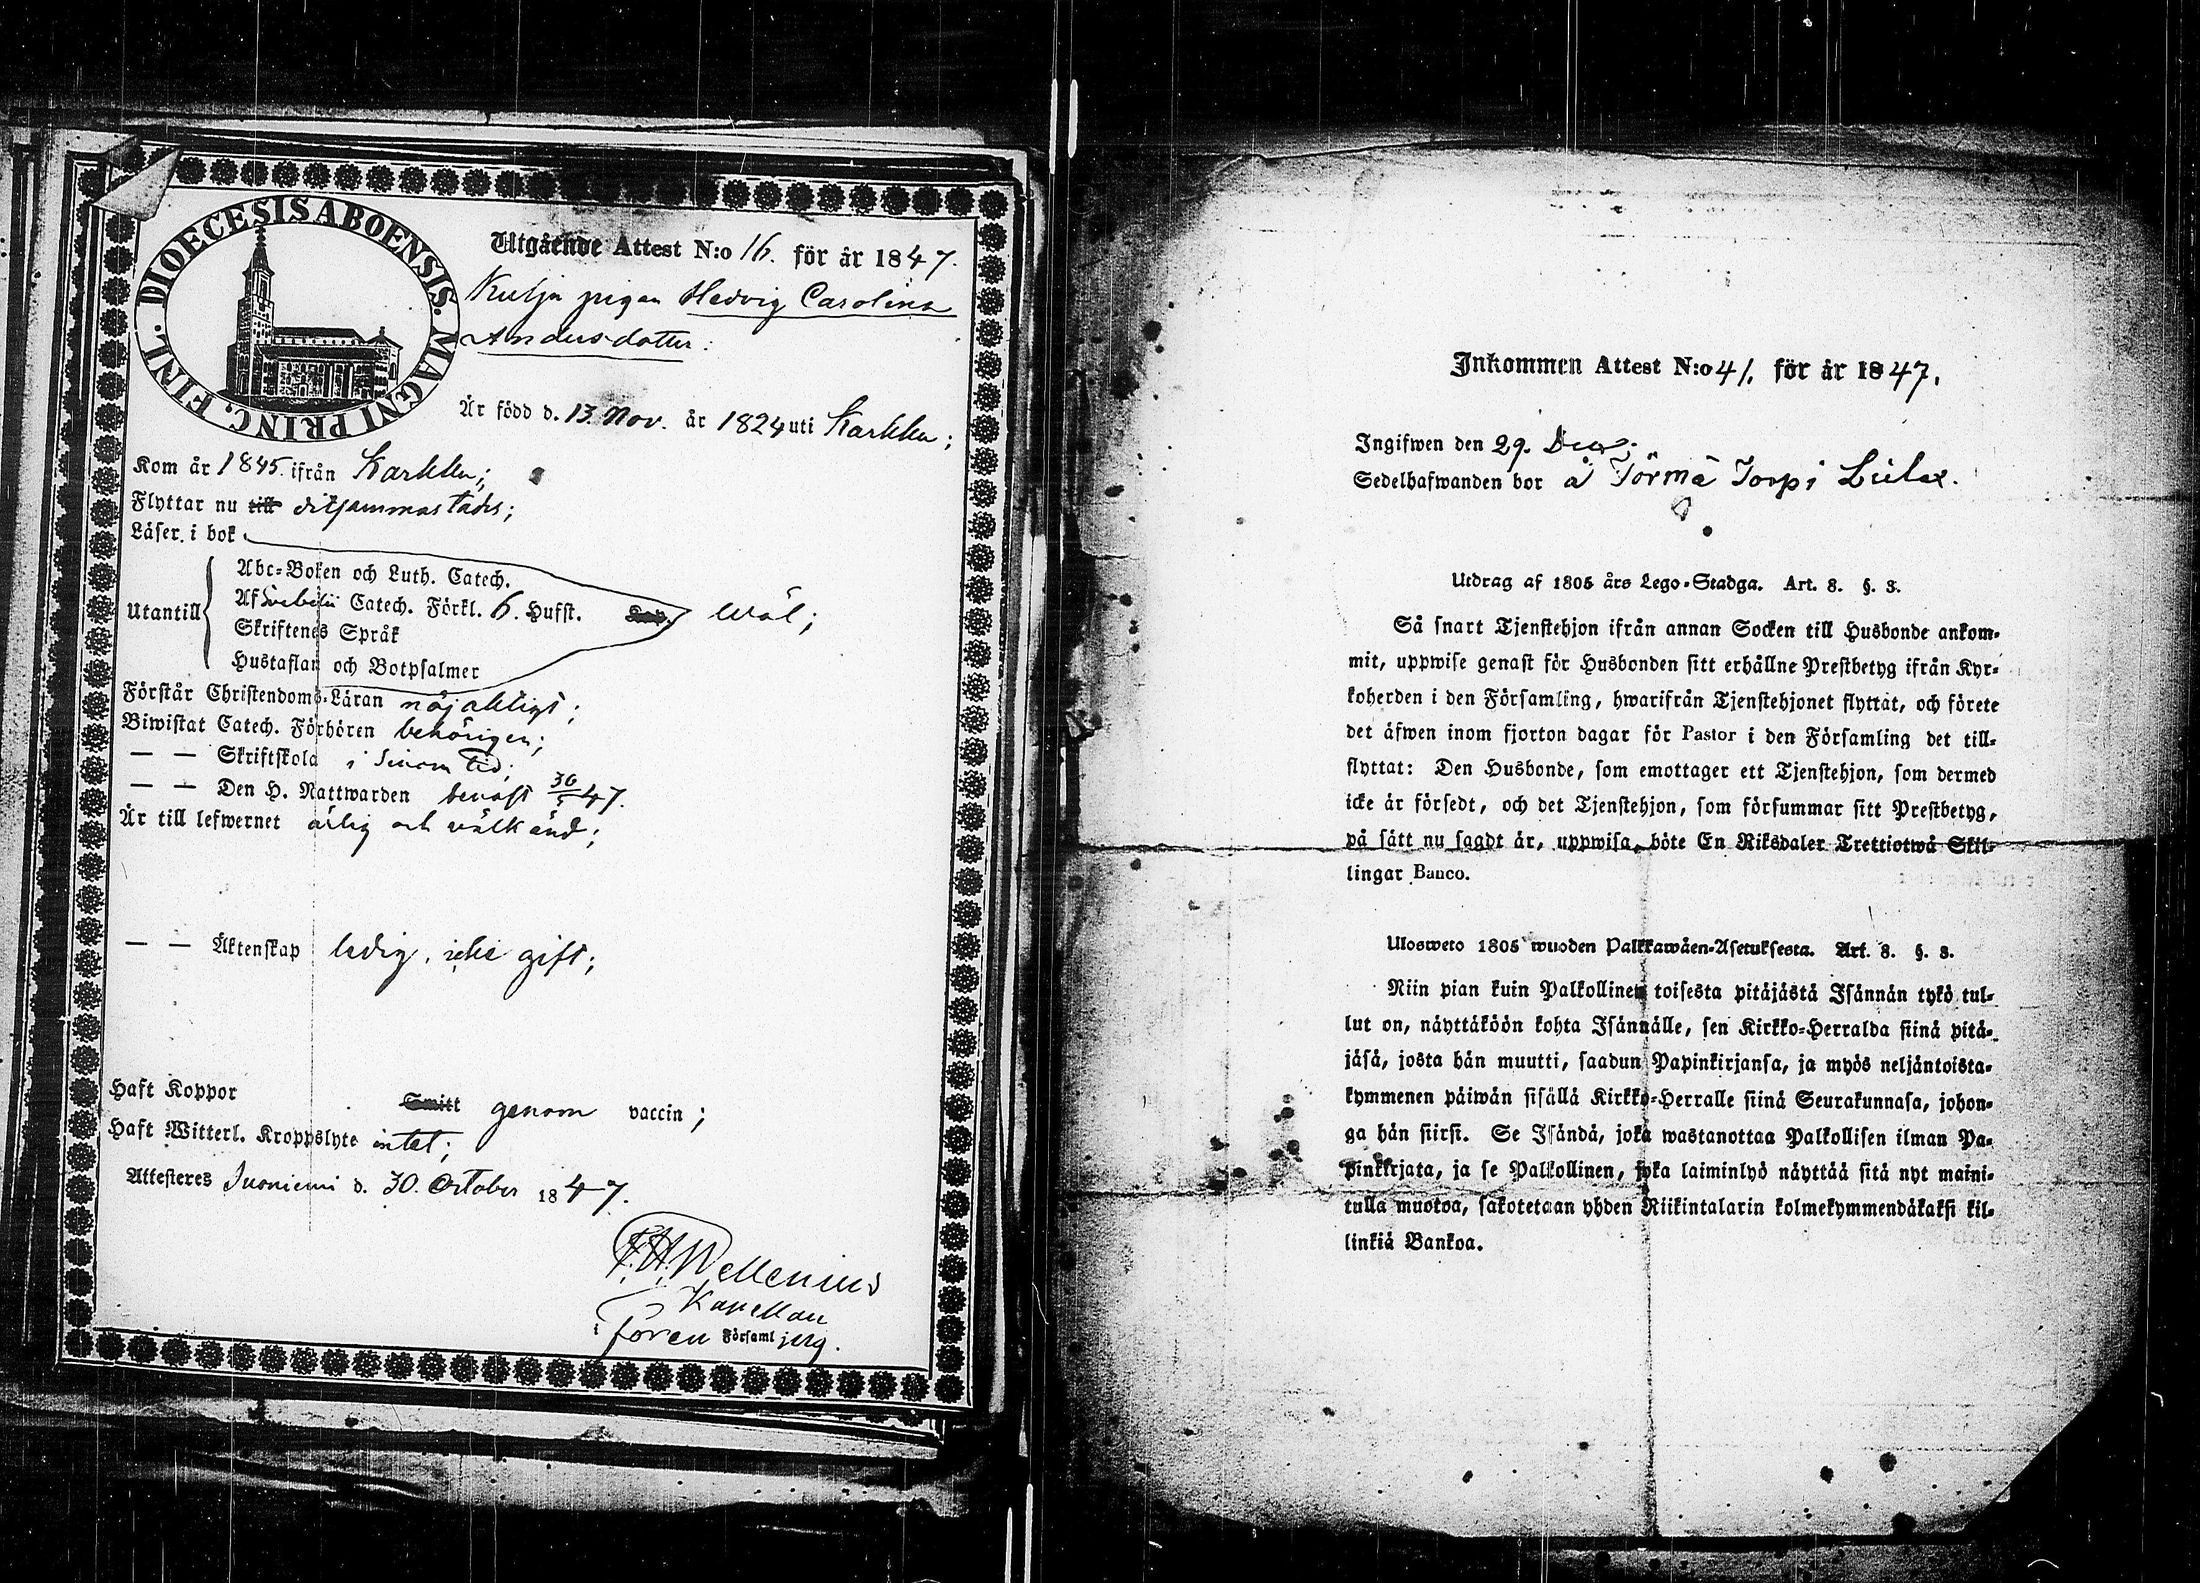 DIOECESIS ABOENSIS. MAGNI PRINC. FINL.
Utgående Attest N:o 16. för år 1847.
pigan Hedvig Carolina
Andersdotter.
Är född d. 13. Nov. år 1824 uti Karkku;
Kom år 1845. ifrån Karkku;
Flyttar nu till ditsammastädes;
Läser i bok
Abc-Boken och Luth. Catech.
Utantill Af Svebelii Catech. Förkl. 6. Hufst. wäl;
Skriftenes Språk
Hustaflan och Botpsalmer
Förstår Christendoms-Läran nöjaktigt;
Biwistat Catech. Förhören behörigen;
— — Skriftskola i sinom tid;
— — Den H. Nattwarden 47.
Är till lefwernet ärlig och välkänd;
— — Äktenskap ledig, icke gift;
Haft Koppor Smitt genom vaccin;
Haft Witterl. Kroppslyte intet;
Attesteres Suoniemi d. 30. October 1847.
F. H. Wellenius
Kapellan
i Församl
Inkommen Attest N:o 41. för år 1847.
Ingifwen den 29. Dec.
Sedelhafwanden bor å Törmä Torp i
Utdrag af 1805 års Lego-Stadga. Art. 8. §. 3.
Så snart Tjenstehjon ifrån annan Socken till Husbonde ankom-
mit, uppwise genast för Husbonden sitt erhållne Prestbetyg ifrån Kyr-
koherden i den Församling, hwarifrån Tjenstehjonet flyttat, och förete
det äfwen inom fjorton dagar för Pastor i den Församling det till-
flyttat: Den Husbonde, som emottager ett Tjenstehjon, som dermed
icke är försedt, och det Tjenstehjon, som försummar sitt Prestbetyg,
på sätt nu sagdt är, uppwisa, böte En Riksdaler Trettiotwå Skil-
lingar Banco.
Ulosweto 1805 wuoden Palkkawäen-Asetuksesta. Art. 8. §. 3.
Niin pian kuin Palkollinen toisesta pitäjästä Isännän tykö tul-
lut on, näyttäköön kohta Isännälle, sen Kirkko-Herralda siinä pitä-
jäsä, josta hän muutti, saadun Papinkirjansa, ja myös neljäntoista-
kymmenen päiwän sisällä Kirkko-Herralle siinä Seurakunnasa, johon-
ga hän siirsi. Se Isändä, joka wastanottaa Palkollisen ilman Pa-
pinkirjata, ja se Palkollinen, joka laiminlyö näyttää sitä nyt maini-
tulla muotoa, sakotetaan yhden Riikintalarin kolmekymmendäkaksi kil-
linkiä Bankoa.